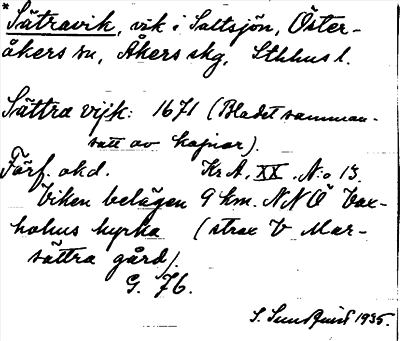 *Sätravik, vik i Saltsjön, Öster-
åkers sn, Åkers skg, Sthlms l.
Sättra vijk: 1671 (Bladet samman-
satt av kopior).
Förf. okd. Kr A, XX, N:o 13.
Viken belägen 9 km. NNÖ Vax-
holms kyrka (strax V Mar-
sättra gård).
G. 76.
S. Sundquist 1935.